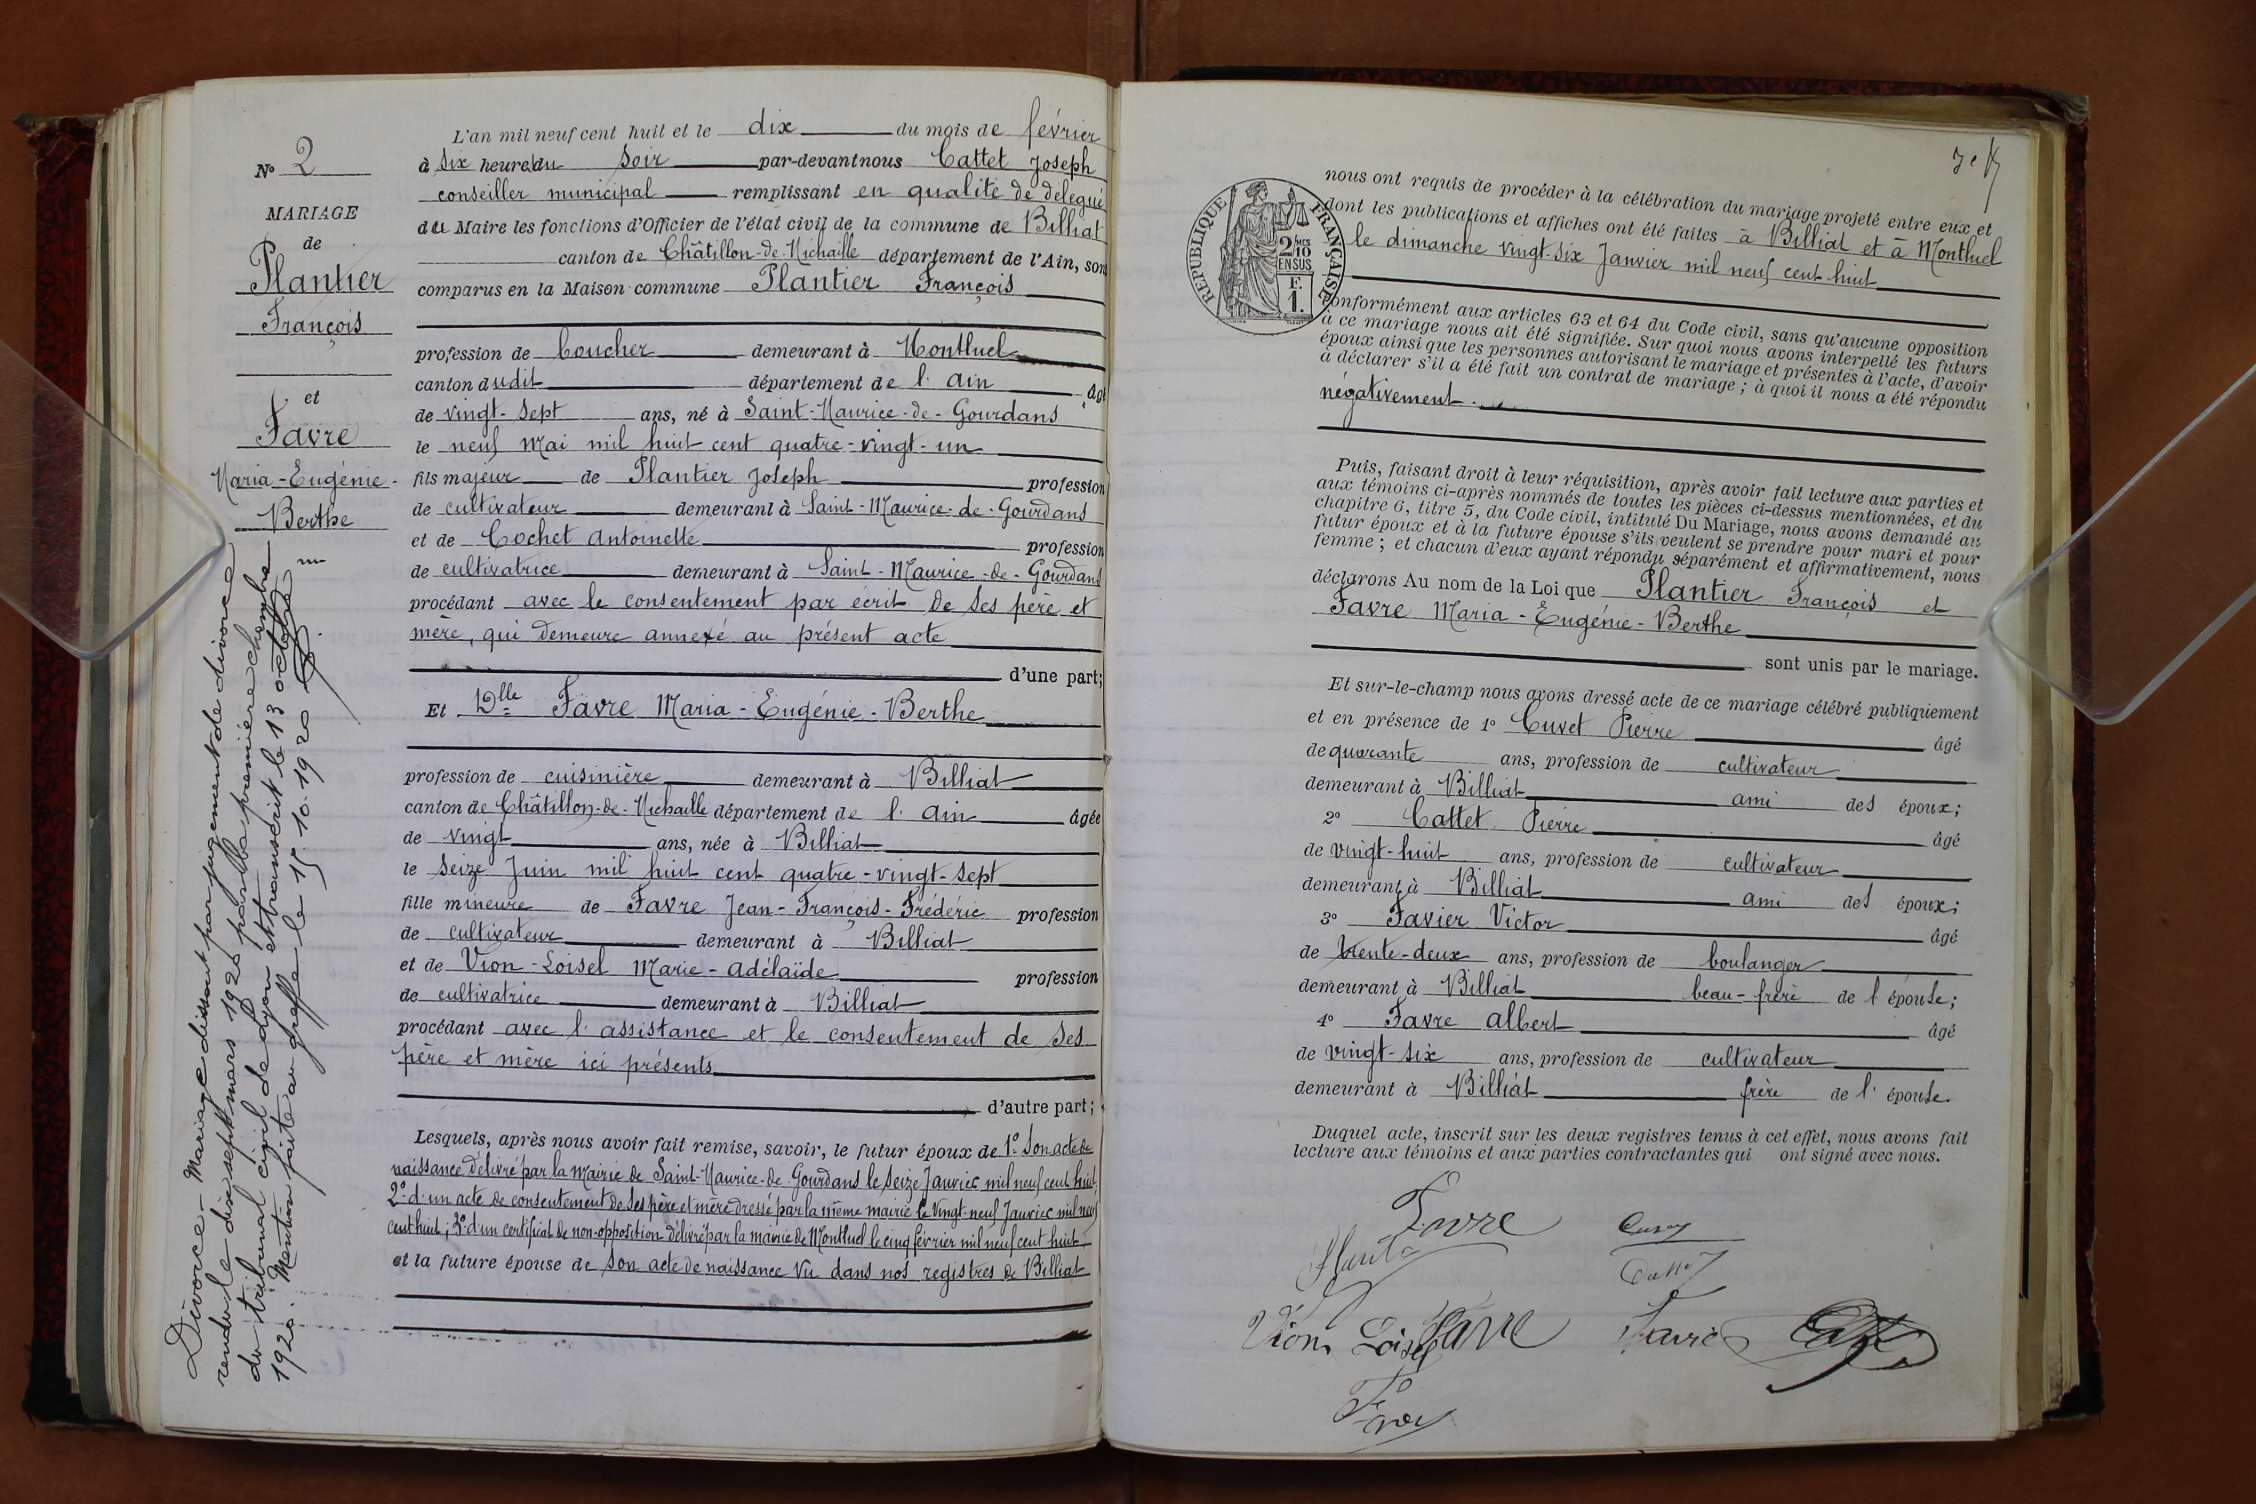 L'an mil neuf cent huit et le dix du mois de février
à six heures du soir par-devant nous Cattet Joseph
conseiller municipal remplissant en qualité de délégué
du Maire les fonctions d'Officier de l'état civil de la commune de Billiat
canton de Châtillon-de-Michaille département de l'Ain, sont
comparus en la Maison commune Plantier François
profession de Coucher demeurant à Montluel
canton dudit département de l'Ain âgé
de vingt-sept ans, né à Saint-Maurice-de-Gourdans
le neuf Mai mil huit cent quatre-vingt-un
fils majeur de Plantier Joseph profession
de cultivateur demeurant à Saint-Maurice-de-Gourdans
et de Cochet Antoinette profession
de cultivatrice demeurant à Saint-Maurice-de-Gourdans
procédant avec le consentement par écrit de ses père et
mère, qui demeure annexé au présent acte
d'une part;
Et Dlle Favre Maria-Eugénie-Berthe
profession de cuisinière demeurant à Billiat
canton de Châtillon-de-Michaille département de l'Ain âgée
de vingt ans, née à Billiat
le seize Juin mil huit cent quatre-vingt-sept
fille mineure de Favre Jean-François-Frédéric profession
de cultivateur demeurant à Billiat
et de Vion-Loisel Marie-Adélaïde profession
de cultivatrice demeurant à Billiat
procédant avec l'assistance et le consentement de ses
père et mère ici présents
d'autre part;
Lesquels, après nous avoir fait remise, savoir, le futur époux de 1º Son acte de
naissance délivré par la Mairie de Saint-Maurice-de-Gourdans le seize Janvier mil neuf cent huit;
2º d'un acte de consentement de ses père et mère dressé par la même mairie le vingt-neuf Janvier mil neuf
cent huit; 3º d'un certificat de non-opposition délivré par la mairie de Montluel le cinq février mil neuf cent huit
et la future épouse de son acte de naissance vu dans nos registres de Billiat
No 2
MARIAGE
de
Plantier
François
et
Favre
Maria-Eugénie-
Berthe
Divorce - Mariage dissout par jugement de divorce
rendu le dix sept mars 1920 par la première chambre
du tribunal civil de Lyon et transcrit le 13 octobre
1920. Mention faite au greffe le 15.10.1920
REPUBLIQUE FRANÇAISE
2/10
EN SUS
F.
1.
nous ont requis de procéder à la célébration du mariage projeté entre eux et
dont les publications et affiches ont été faites à Billiat et à Montluel
le dimanche vingt-six Janvier mil neuf cent huit
conformément aux articles 63 et 64 du Code civil, sans qu'aucune opposition
à ce mariage nous ait été signifiée. Sur quoi nous avons interpellé les futurs
époux ainsi que les personnes autorisant le mariage et présentes à l'acte, d'avoir
à déclarer s'il a été fait un contrat de mariage; à quoi il nous a été répondu
négativement.
Puis, faisant droit à leur réquisition, après avoir fait lecture aux parties et
aux témoins ci-après nommés de toutes les pièces ci-dessus mentionnées, et du
chapitre 6, titre 5, du Code civil, intitulé Du Mariage, nous avons demandé au
futur époux et à la future épouse s'ils veulent se prendre pour mari et pour
femme; et chacun d'eux ayant répondu séparément et affirmativement, nous
déclarons Au nom de la Loi que Plantier François et
Favre Maria-Eugénie-Berthe
sont unis par le mariage.
Et sur-le-champ nous avons dressé acte de ce mariage célébré publiquement
et en présence de 1º Cuvet Pierre âgé
de quarante ans, profession de cultivateur
demeurant à Billiat ami des époux;
2º Cattet Pierre âgé
de vingt-huit ans, profession de cultivateur
demeurant à Billiat ami des époux;
3º Favier Victor âgé
de trente-deux ans, profession de boulanger
demeurant à Billiat beau-frère de l'épouse;
4º Favre Albert âgé
de vingt-six ans, profession de cultivateur
demeurant à Billiat frère de l'épouse.
Duquel acte, inscrit sur les deux registres tenus à cet effet, nous avons fait
lecture aux témoins et aux parties contractantes qui ont signé avec nous.
Favre
Vion Loisel Favre